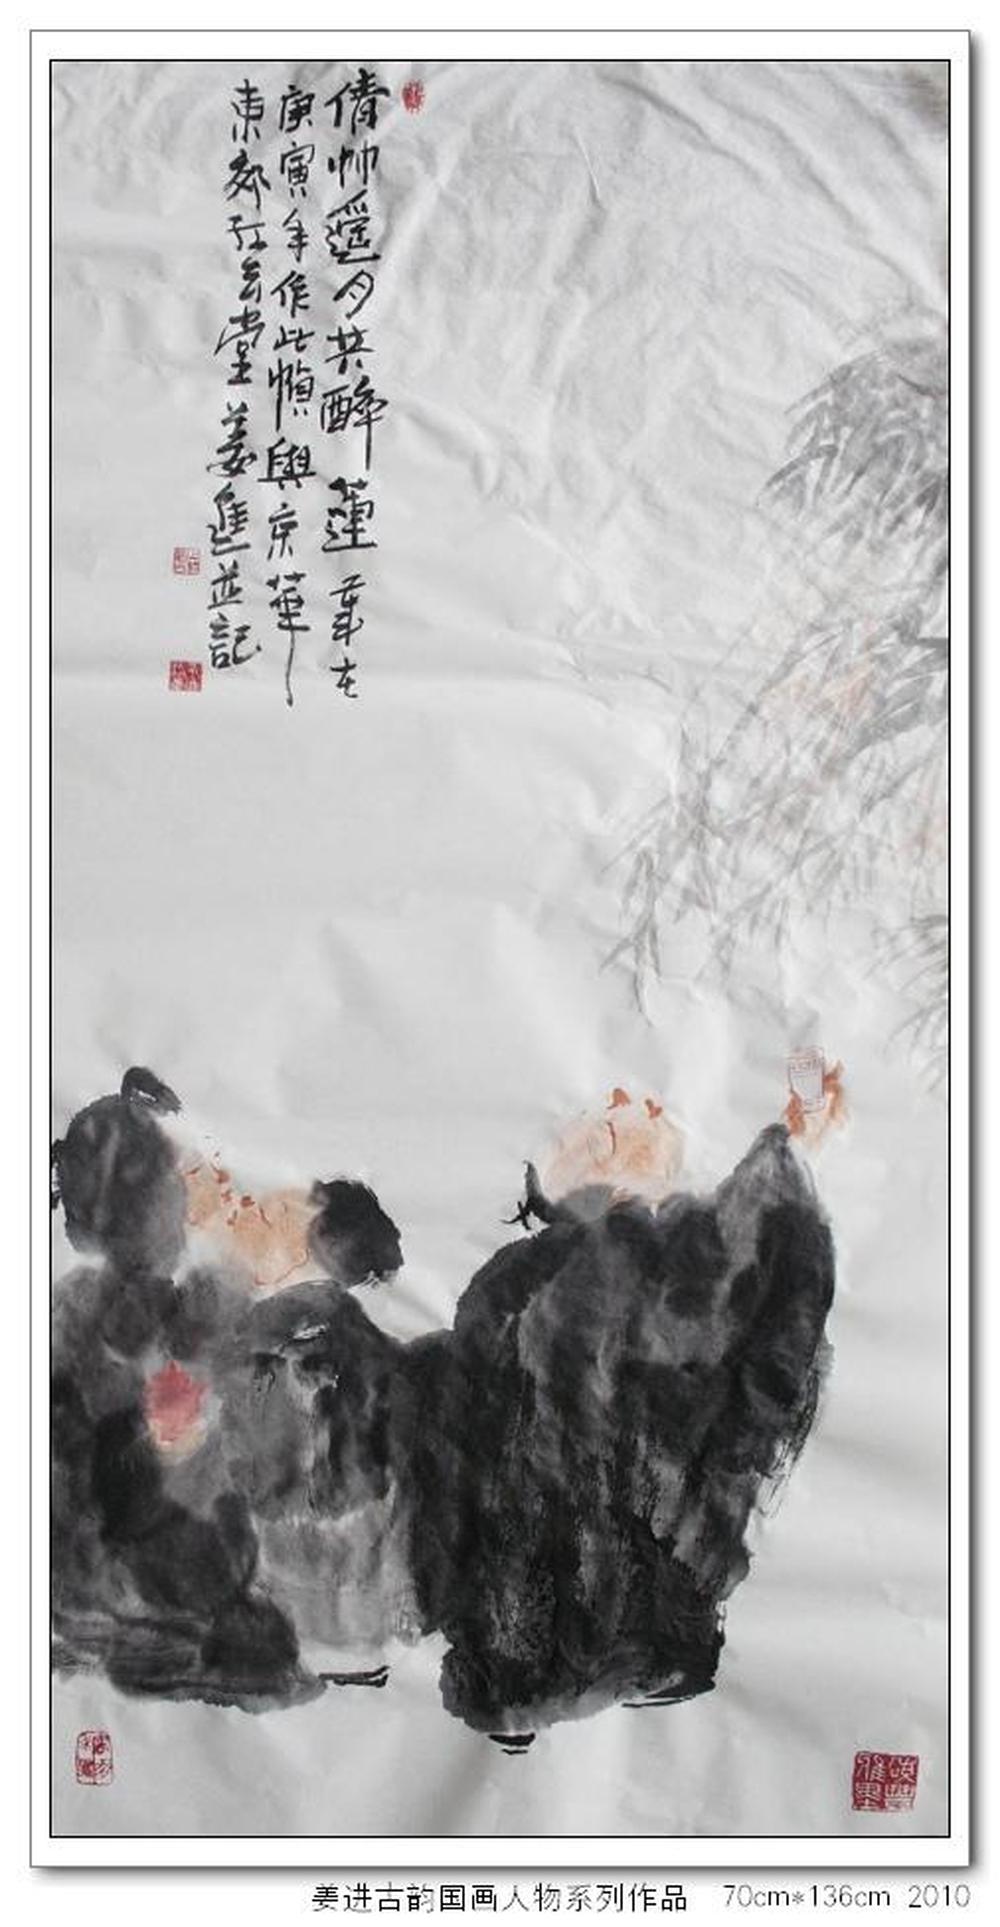 倩帅遥月共醉蓮 歲在
庚寅年作此幀與京華
東郊紅云堂姜進並記
姜进古韵国画人物系列作品 70cm*136cm 2010